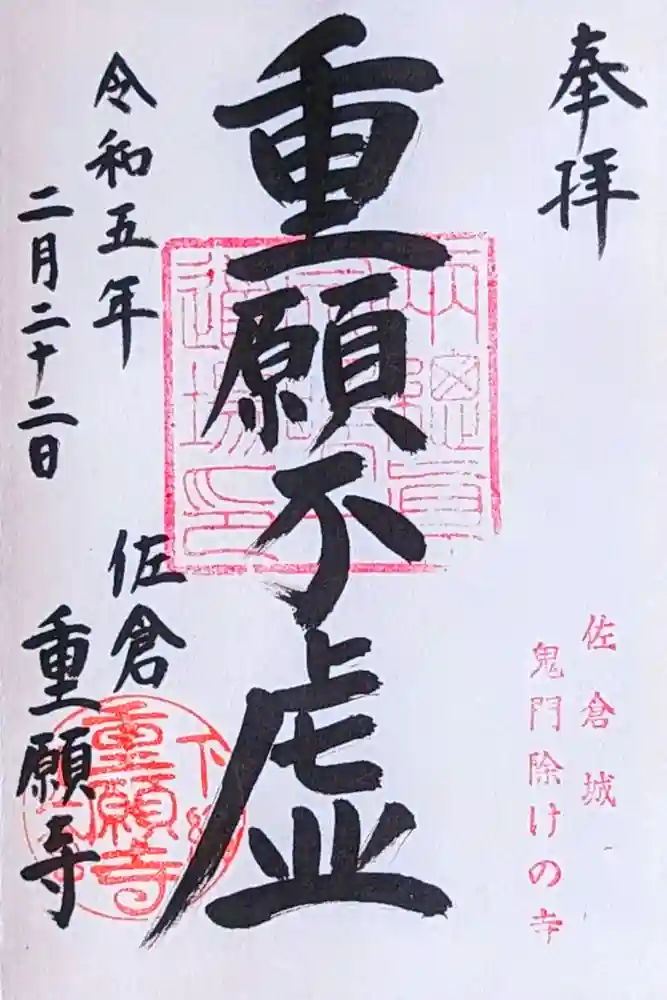 奉拝
佐倉城
鬼門除けの寺
重願不虚
令和五年
二月二十二日
佐倉
重願寺
重願寺
下総